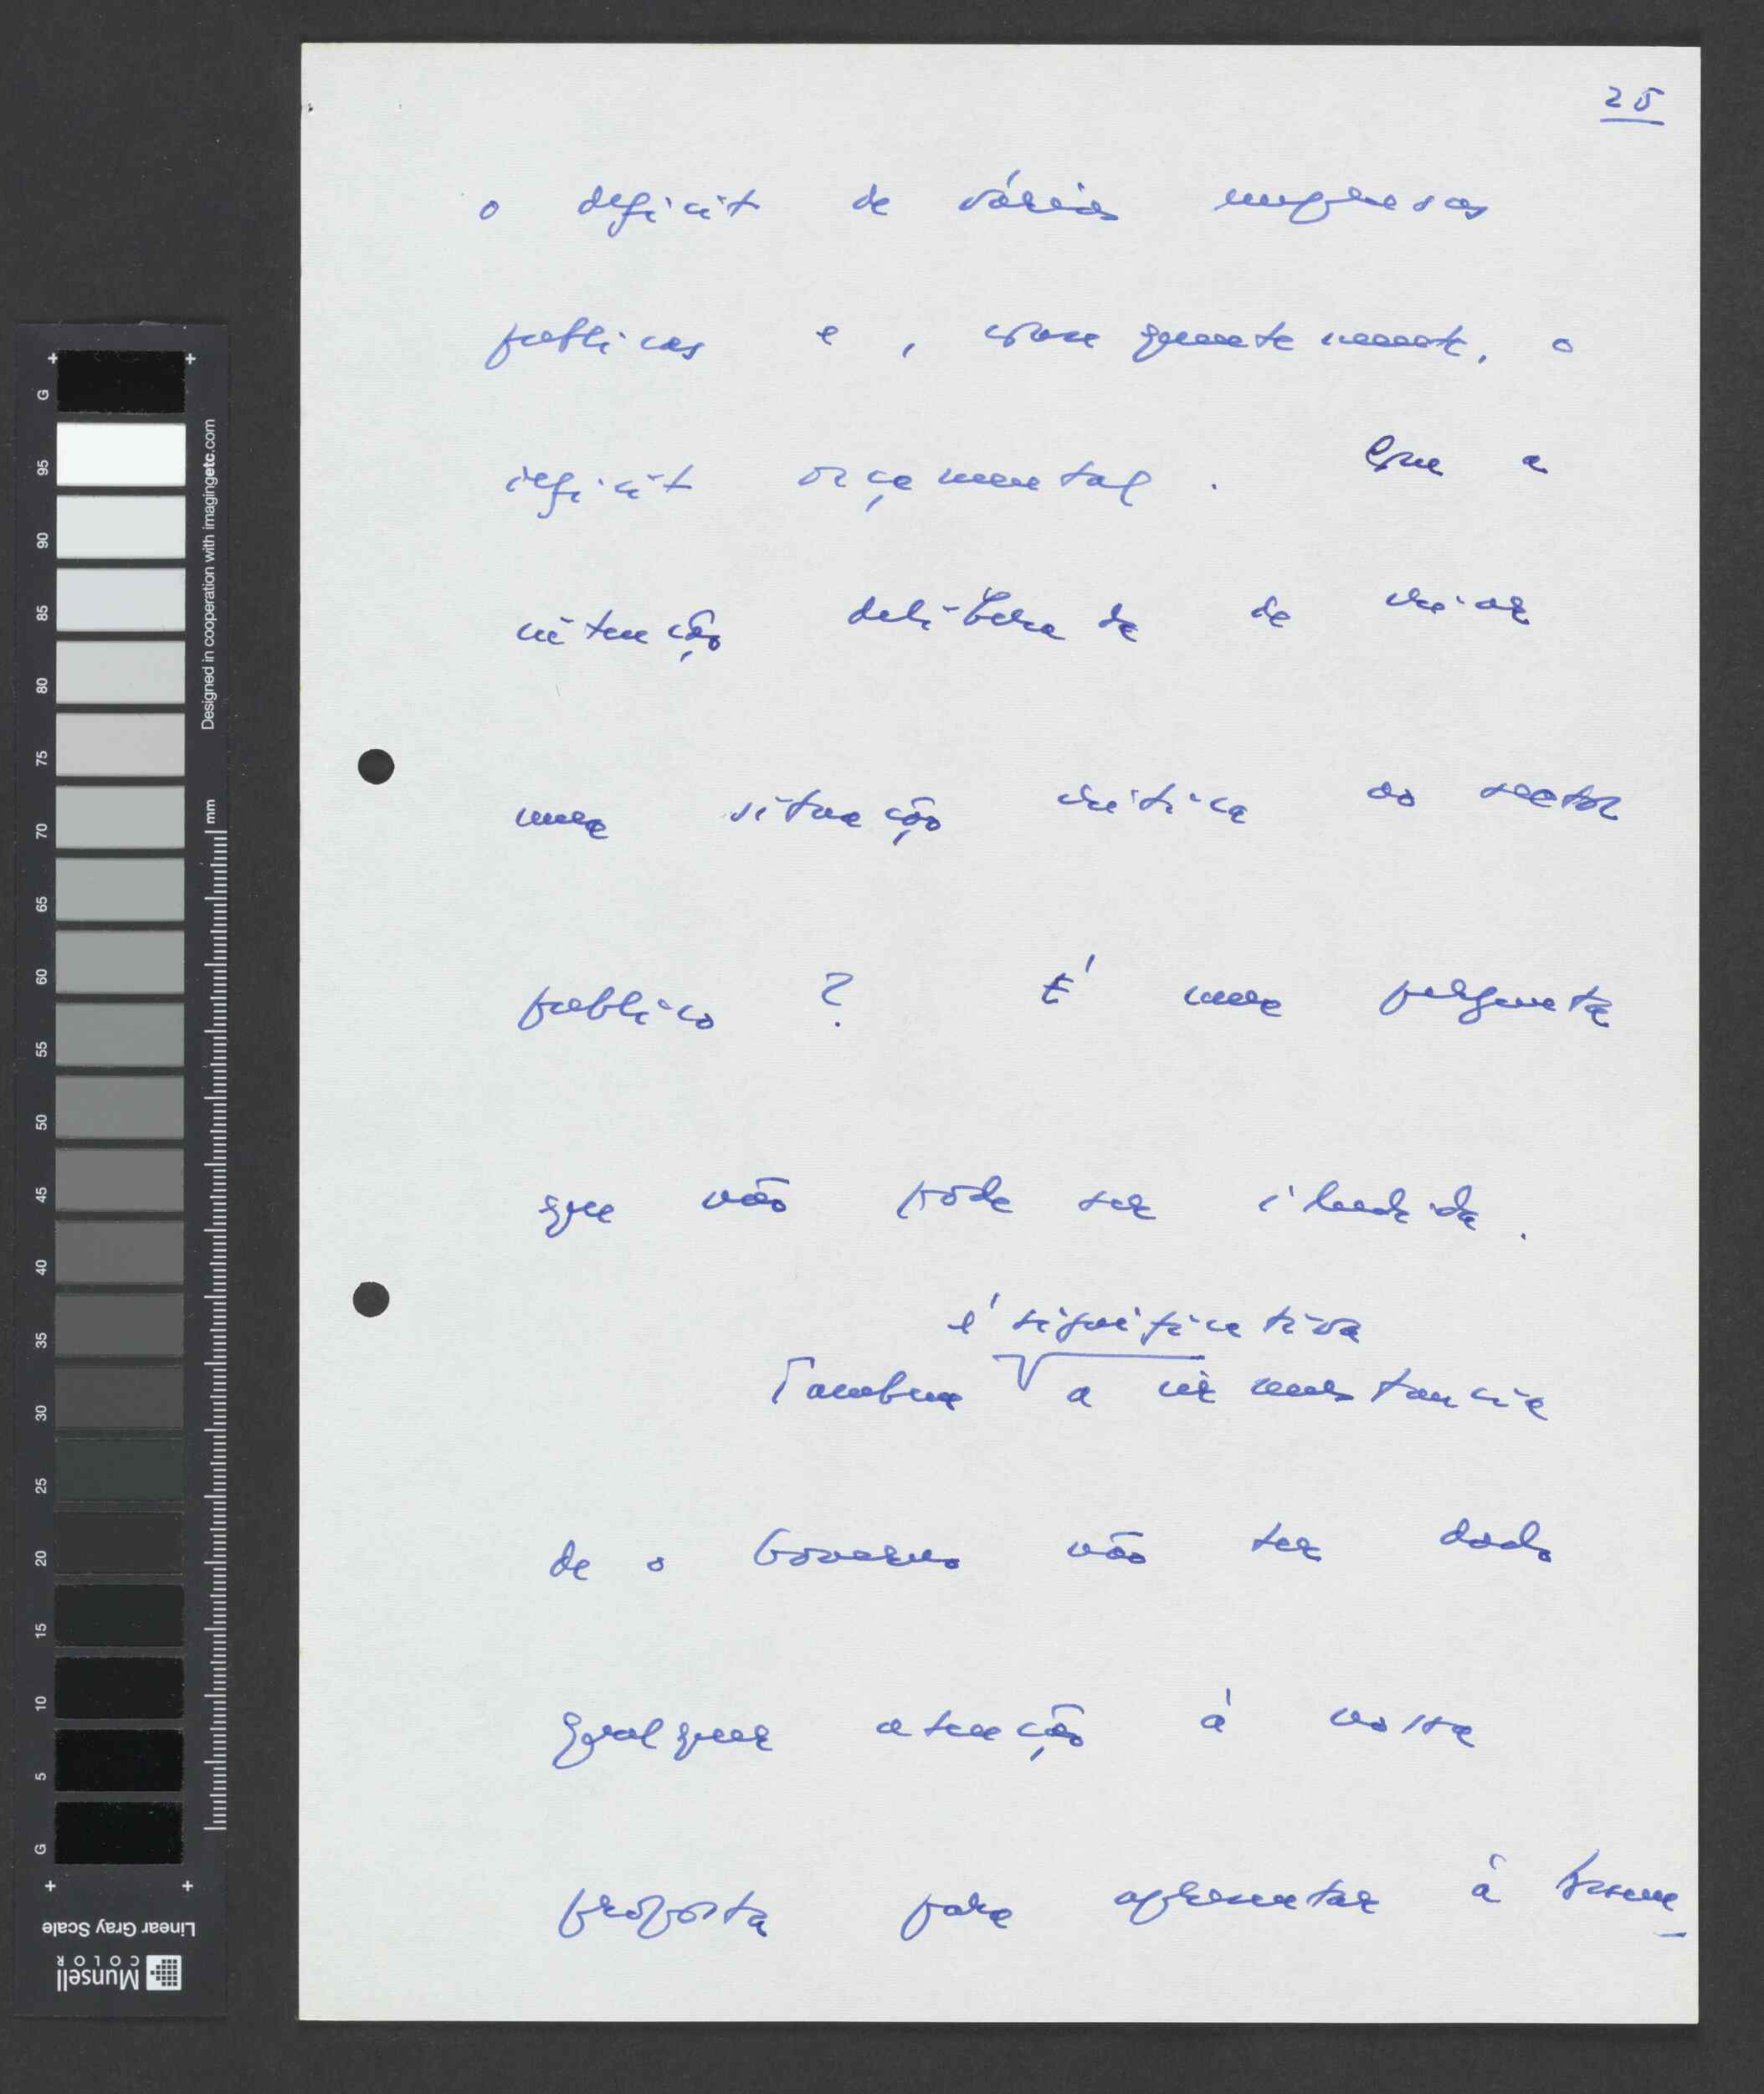 25
o deficit de várias empresas
publicas e, consequentemente, o
deficit orçamental. Com a
intenção deliberada de criar
uma situação critica ao sector
publico? É uma pergunta
que não pode ser iludida.
é significativa
Tambem a circunstancia
de o Governo não ter dado
qualquer atenção à nossa
proposta para apresentar à
G 95 90 85 80 75 70 65 60 55 50 45 40 35 30 25 20 15 10 5 G
Designed in cooperation with imagingetc.com
mm
Linear Gray Scale
Munsell
COLOR